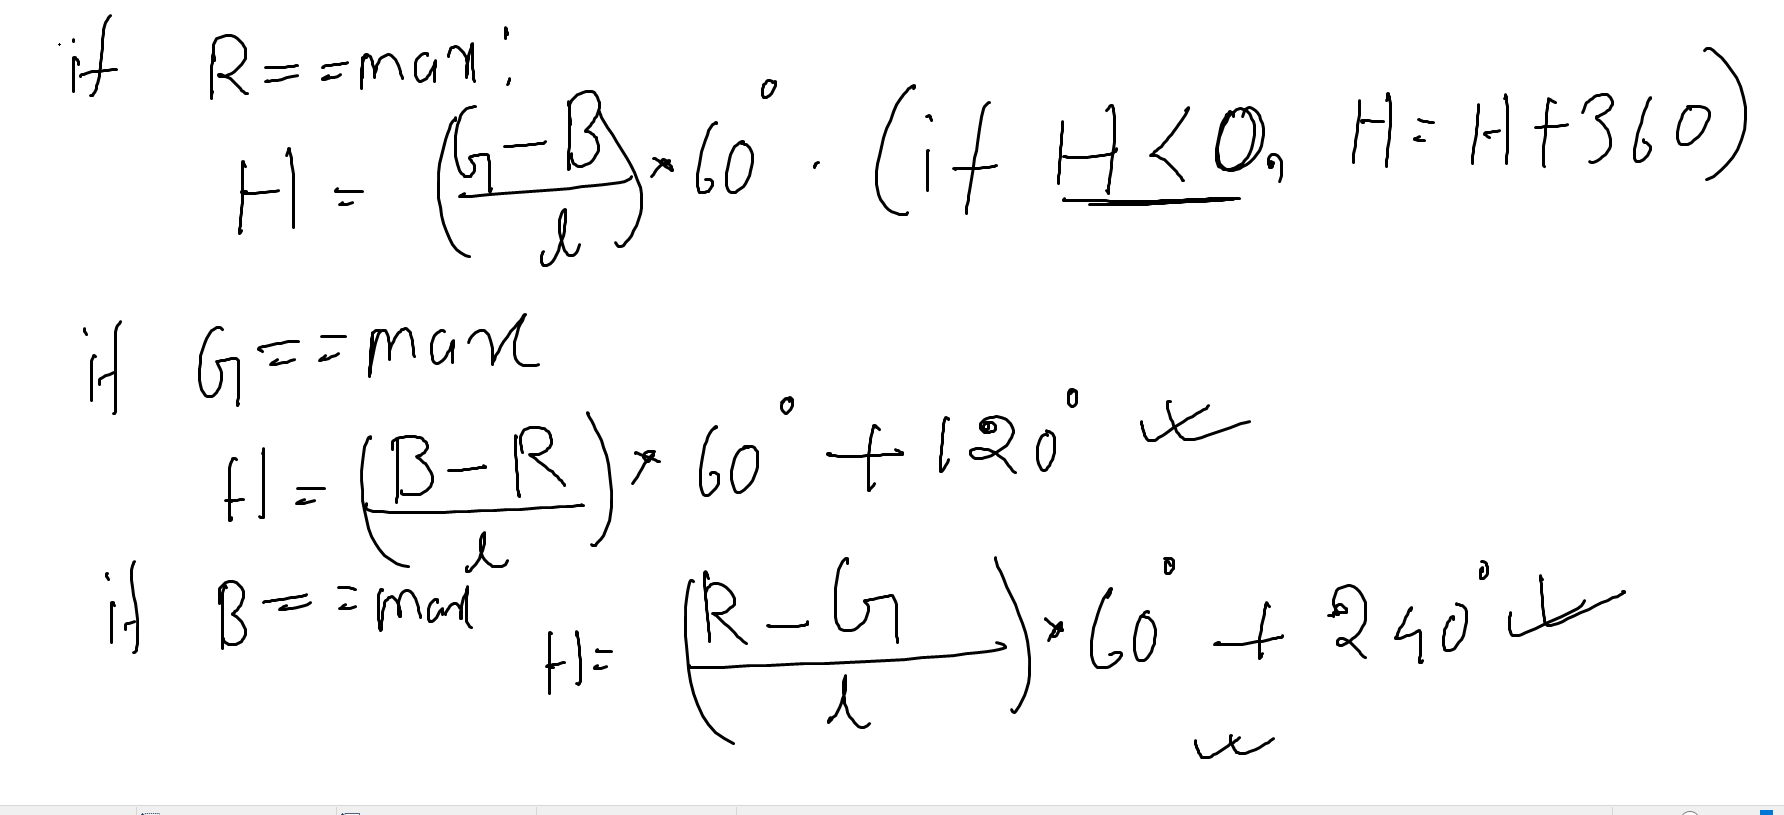 if R==max:
H = (G-B/l)*60° . (if H<0, H=H+360)
if G==max
H = (B-R/l)*60°+120°
if B==max
H= (R-G/l)*60°+240°